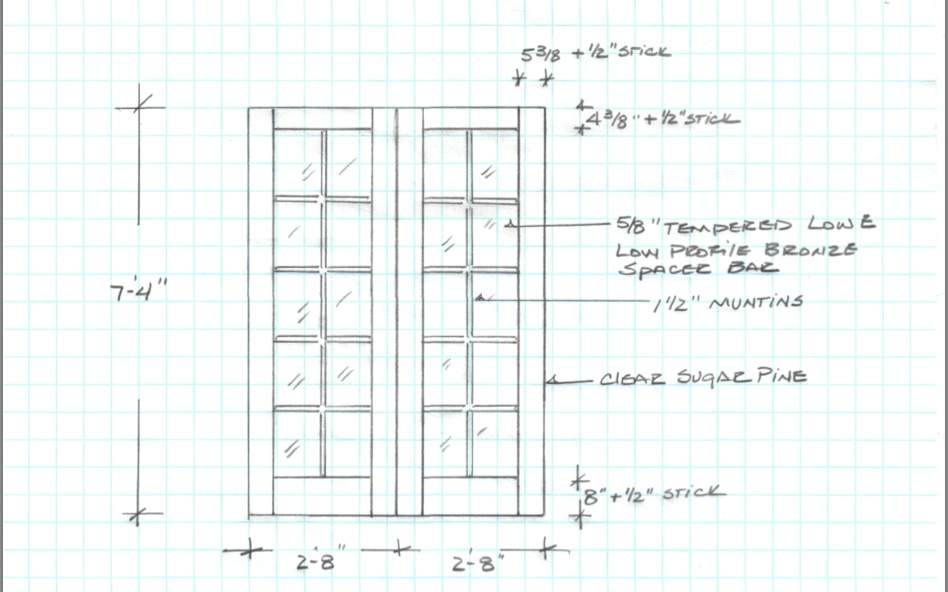 5 3/8 + 1/2" STICK
4 3/8" + 1/2" STICK
5/8" TEMPERED LOWE
LOW PROFILE BRONZE
SPACER BAR
7'-4"
1 1/2" MUNTINS
CLEAR SUGAR PINE
8" + 1/2" STICK
2'-8"
2'-8"